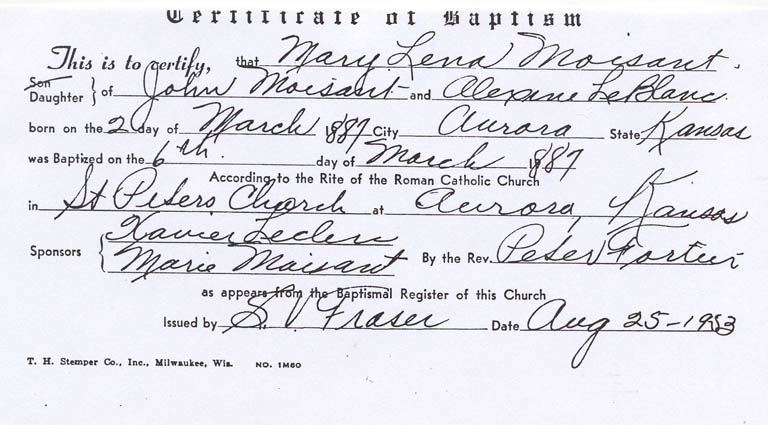 Certificate of Baptism
This is to certify, that Mary Lena Moisant.
Son
Daughter } of John Moisant and Alexine LeBlanc.
born on the 2 day of March 1887 City Aurora State Kansas
was Baptized on the 6th. day of March 1887
According to the Rite of the Roman Catholic Church
in St Peters Church at Aurora, Kansas
Sponsors { Xavier Leclerc
Marie Moisant By the Rev. Peter Fortier
as appears from the Baptismal Register of this Church
Issued by S. V Fraser Date Aug 25-1953
T. H. Stemper Co., Inc., Milwaukee, Wis. NO. 1M60